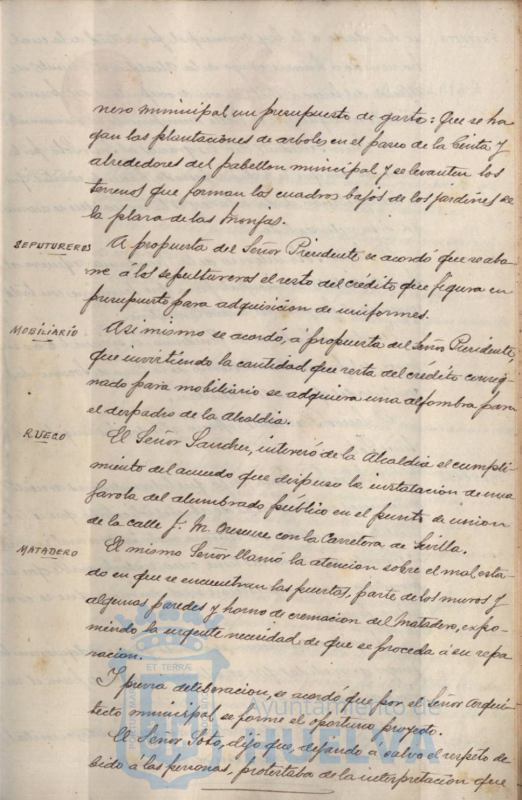 niero municipal un presupuesto de gasto: Que se ha
gan las plantaciones de arboles en el paseo de la Cinta y
alrededores del pabellon municipal y se levanten los
terrenos que forman los cuadros bajos de los jardines de
la plaza de las Monjas.
SEPUTUREROS A propuesta del Señor Presidente se acordó que se abo
ne á los sepultureros el resto del crédito que figura en
presupuesto para adquisicion de uniformes.
MOBILIARIO Asi mismo se acordó, á propuesta del Señor Presidente,
que invirtiendo la cantidad que resta del credito consig
nado para mobiliario se adquiera una alfombra para
el despacho de la Alcaldia.
RUEGO El Señor Sanchez, interesó de la Alcaldia el cumpli
miento del acuerdo que dispuso la instalacion de una
farola del alumbrado público en el punto de union
de la calle J. M. con la Carretera de Sevilla.
MATADERO El mismo Señor llamó la atencion sobre el mal esta
do en que se encuentran las puertas, parte de los muros y
algunas paredes y horno de cremacion del Matadero, expo-
niendo la urgente necesidad de que se proceda á su repa
racion.
Y previa deliberacion, se acordó que por el Señor Arqui-
tecto municipal se forme el oportuno proyecto.
El Señor Soto, dijo que, dejando á salvo el respeto de
bido á las personas, protestaba de la interpretacion que
ET TERRÆ
Ayuntamiento de
HUELVA